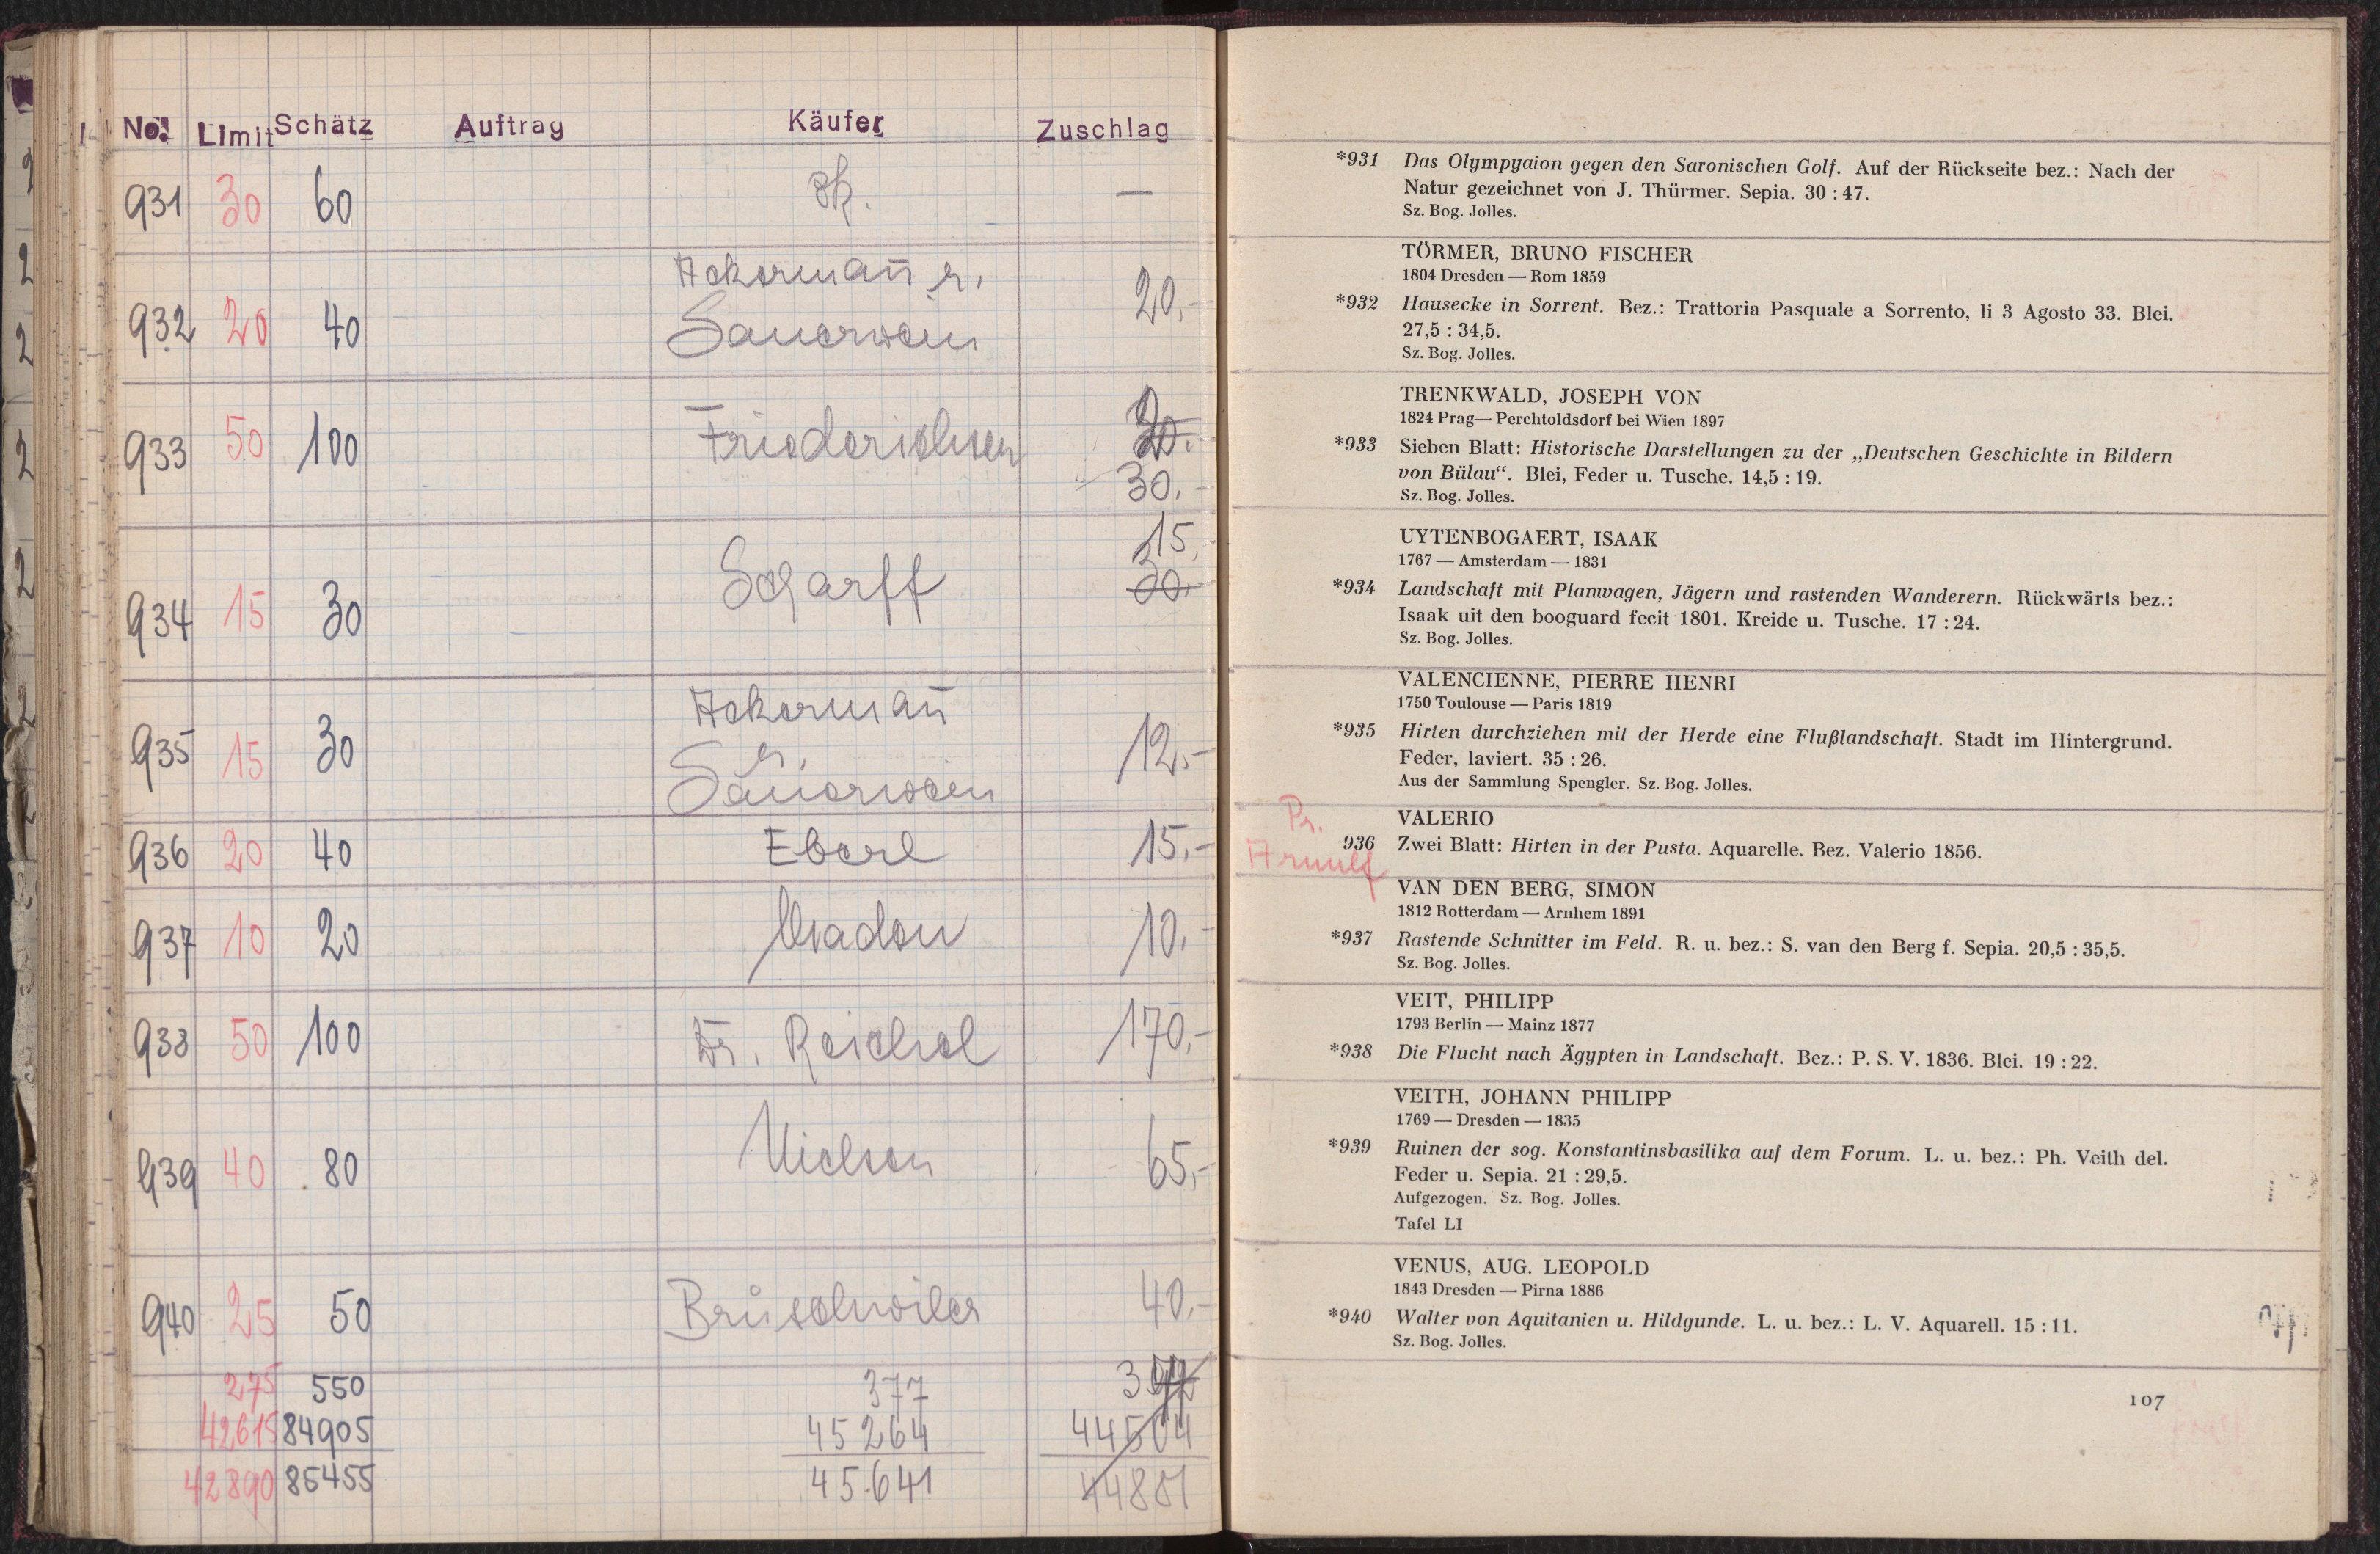 No. Limit Schätz Auftrag Käufer Zuschlag
931 30 60 —
932 20 40 Ackermañ u. Sauerwein 20.-
933 50 100 Friederichsen 30.-
934 15 30 Scharff 15.
30.-
935 15 30 Ackermañ u. Sauerwein 12.-
936 20 40 Eberl 15.-
937 10 20 10.-
938 50 100 Dr. Reichel 170.-
939 40 80 65.-
940 25 50 Brüschwiler 40.-
275 550 377
42615 84905 45264 44504
42890 85455 45641
*931 Das Olympyaion gegen den Saronischen Golf. Auf der Rückseite bez.: Nach der
Natur gezeichnet von J. Thürmer. Sepia. 30 : 47.
Sz. Bog. Jolles.
TÖRMER, BRUNO FISCHER
1804 Dresden — Rom 1859
*932 Hausecke in Sorrent. Bez.: Trattoria Pasquale a Sorrento, li 3 Agosto 33. Blei.
27,5 : 34,5.
Sz. Bog. Jolles.
TRENKWALD, JOSEPH VON
1824 Prag— Perchtoldsdorf bei Wien 1897
*933 Sieben Blatt: Historische Darstellungen zu der „Deutschen Geschichte in Bildern
von Bülau“. Blei, Feder u. Tusche. 14,5 : 19.
Sz. Bog. Jolles.
UYTENBOGAERT, ISAAK
1767 — Amsterdam — 1831
*934 Landschaft mit Planwagen, Jägern und rastenden Wanderern. Rückwärts bez.:
Isaak uit den booguard fecit 1801. Kreide u. Tusche. 17 : 24.
Sz. Bog. Jolles.
VALENCIENNE, PIERRE HENRI
1750 Toulouse — Paris 1819
*935 Hirten durchziehen mit der Herde eine Flußlandschaft. Stadt im Hintergrund.
Feder, laviert. 35 : 26.
Aus der Sammlung Spengler. Sz. Bog. Jolles.
Pr.
Arnulf
VALERIO
936 Zwei Blatt: Hirten in der Pusta. Aquarelle. Bez. Valerio 1856.
VAN DEN BERG, SIMON
1812 Rotterdam — Arnhem 1891
*937 Rastende Schnitter im Feld. R. u. bez.: S. van den Berg f. Sepia. 20,5 : 35,5.
Sz. Bog. Jolles.
VEIT, PHILIPP
1793 Berlin — Mainz 1877
*938 Die Flucht nach Ägypten in Landschaft. Bez.: P. S. V. 1836. Blei. 19 : 22.
VEITH, JOHANN PHILIPP
1769 — Dresden — 1835
*939 Ruinen der sog. Konstantinsbasilika auf dem Forum. L. u. bez.: Ph. Veith del.
Feder u. Sepia. 21 : 29,5.
Aufgezogen. Sz. Bog. Jolles.
Tafel LI
VENUS, AUG. LEOPOLD
1843 Dresden — Pirna 1886
*940 Walter von Aquitanien u. Hildgunde. L. u. bez.: L. V. Aquarell. 15 : 11.
Sz. Bog. Jolles.
107